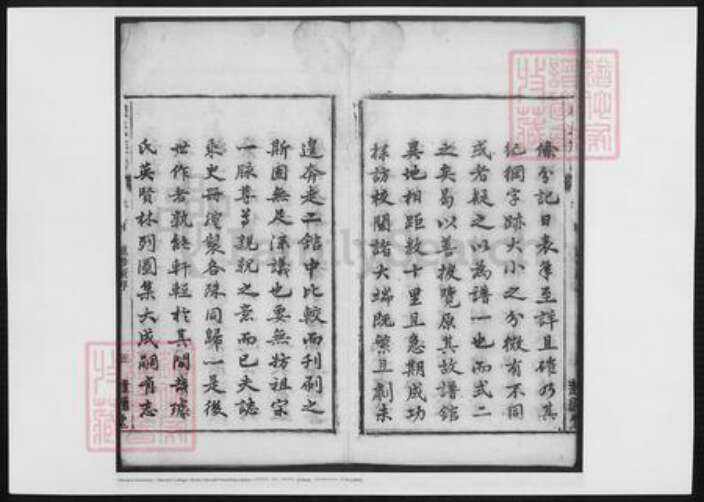 條分記日表年至詳且確乃其
紀綱字跡大小之分微有不同
或者疑之以為譜一也而式二
之奚曷以善披覽原其故譜館
異地相距數十里且急期成功
採訪校閱諸大端既繁且劇未
遑奔走二館中比較而刊刷之
斯固無足深議也要無妨祖宗
一脉尊尊親親之意而已夫誌
乘史冊體製各殊同歸一是後
世作者孰能軒輊於其間哉璩
氏英賢林列圖集大成嗣有志
FamilySearch